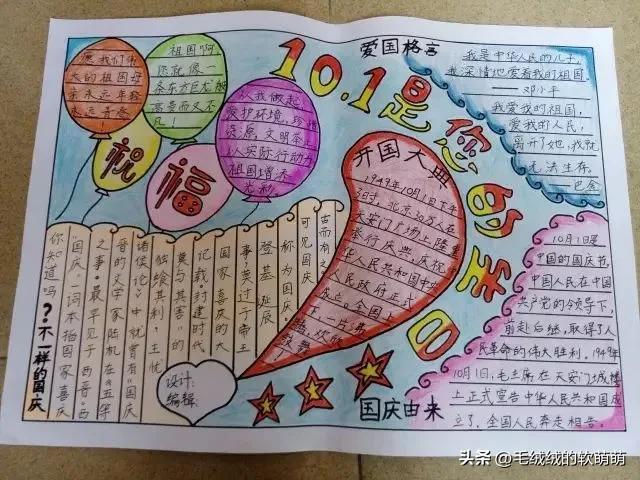 10.1是您的生日
爱国格言
我是中华人民的儿子,
我深情地爱着我的祖国
——邓小平
我爱我的祖国,
爱我的人民,
离开了她,我就
无法生存。
——巴金
愿我们伟
大的祖国母
亲永远年轻
永远青春!
祖国啊
您就像一
条东方巨龙
高贵而又不
凡!
从我做起
爱护环境,珍惜
资源,文明茶
以实际行动为
祖国增添
光彩
祝
福
开国大典
1949年10月1日下午
3时,北京30万人在
天安门广场上隆重
举行庆典,庆祝中
华人民共和国中央
人民政府正式
成立。全国上
下,一片热
腾,欢欣
鼓舞!
10月1日是
中国的国庆节,
中国人民在中国
共产党的领导下,
前赴后继,取得了人
民革命的伟大胜利。1949年
10月1日,毛主席在天安门城楼
上正式宣告中华人民共和国成
立了,全国人民奔走相告。
国庆由来
?不一样的国庆
你知道吗
“国庆”一词本指国家喜庆
之事。最早见于西晋。西
晋的文学家陆机在《五等
诸侯论》中就曾有“国庆
独飨其利,主忧
莫与其害”的
记载封建时代
国家喜庆的大
事,莫过于帝王
登基、诞辰
称为国庆
可见国庆
古而有之
设计:
编辑:
头条 @毛绒绒的软萌萌